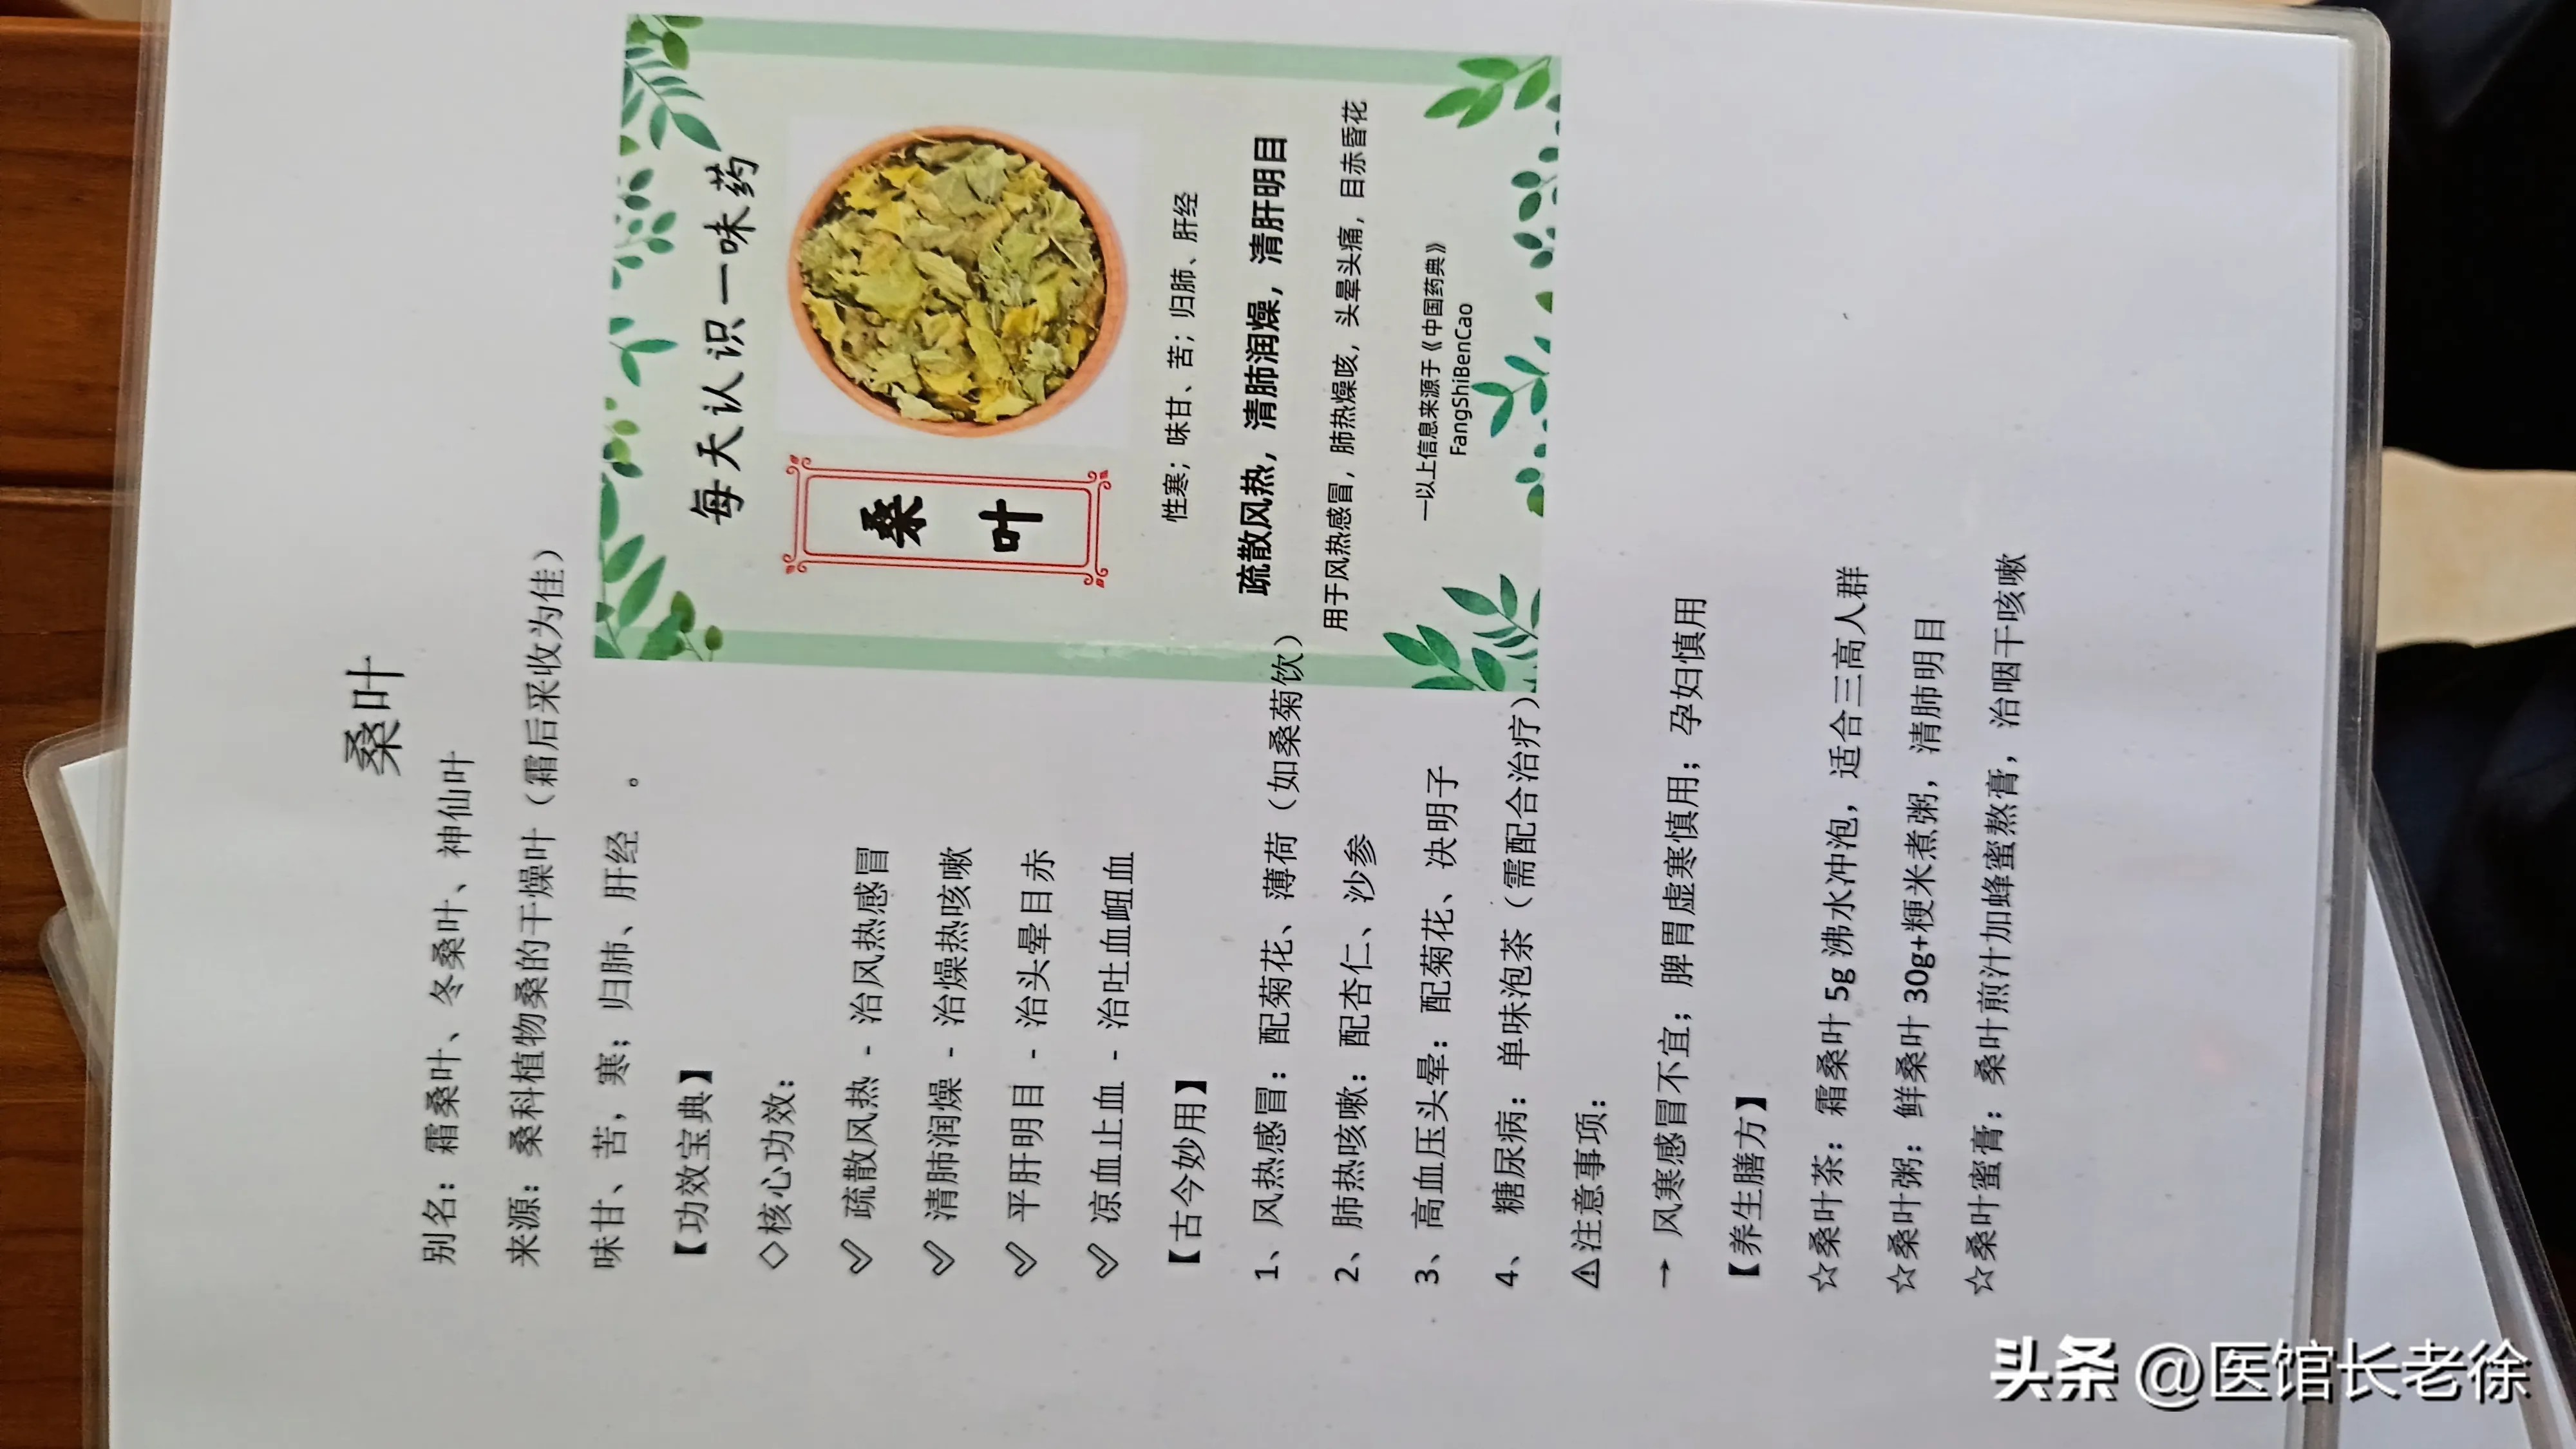 桑叶
别名：霜桑叶、冬桑叶、神仙叶
来源：桑科植物桑的干燥叶（霜后采收为佳）
味甘、苦，寒；归肺、肝经 。
【功效宝典】
◇核心功效：
✓ 疏散风热 - 治风热感冒
✓ 清肺润燥 - 治燥热咳嗽
✓ 平肝明目 - 治头晕目赤
✓ 凉血止血 - 治吐血衄血
【古今妙用】
1、风热感冒：配菊花、薄荷（如桑菊饮）
2、肺热咳嗽：配杏仁、沙参
3、高血压头晕：配菊花、决明子
4、 糖尿病：单味泡茶（需配合治疗）
⚠注意事项：
→ 风寒感冒不宜；脾胃虚寒慎用；孕妇慎用
【养生膳方】
☆桑叶茶：霜桑叶 5g 沸水冲泡，适合三高人群
☆桑叶粥：鲜桑叶 30g+粳米煮粥，清肺明目
☆桑叶蜜膏：桑叶煎汁加蜂蜜熬膏，治咽干咳嗽
每天认识一味药
桑叶
性寒；味甘、苦；归肺、肝经
疏散风热，清肺润燥，清肝明目
用于风热感冒，肺热燥咳，头晕头痛，目赤昏花
一以上信息来源于《中国药典》
FangShiBenCao
头条 @医馆长老徐